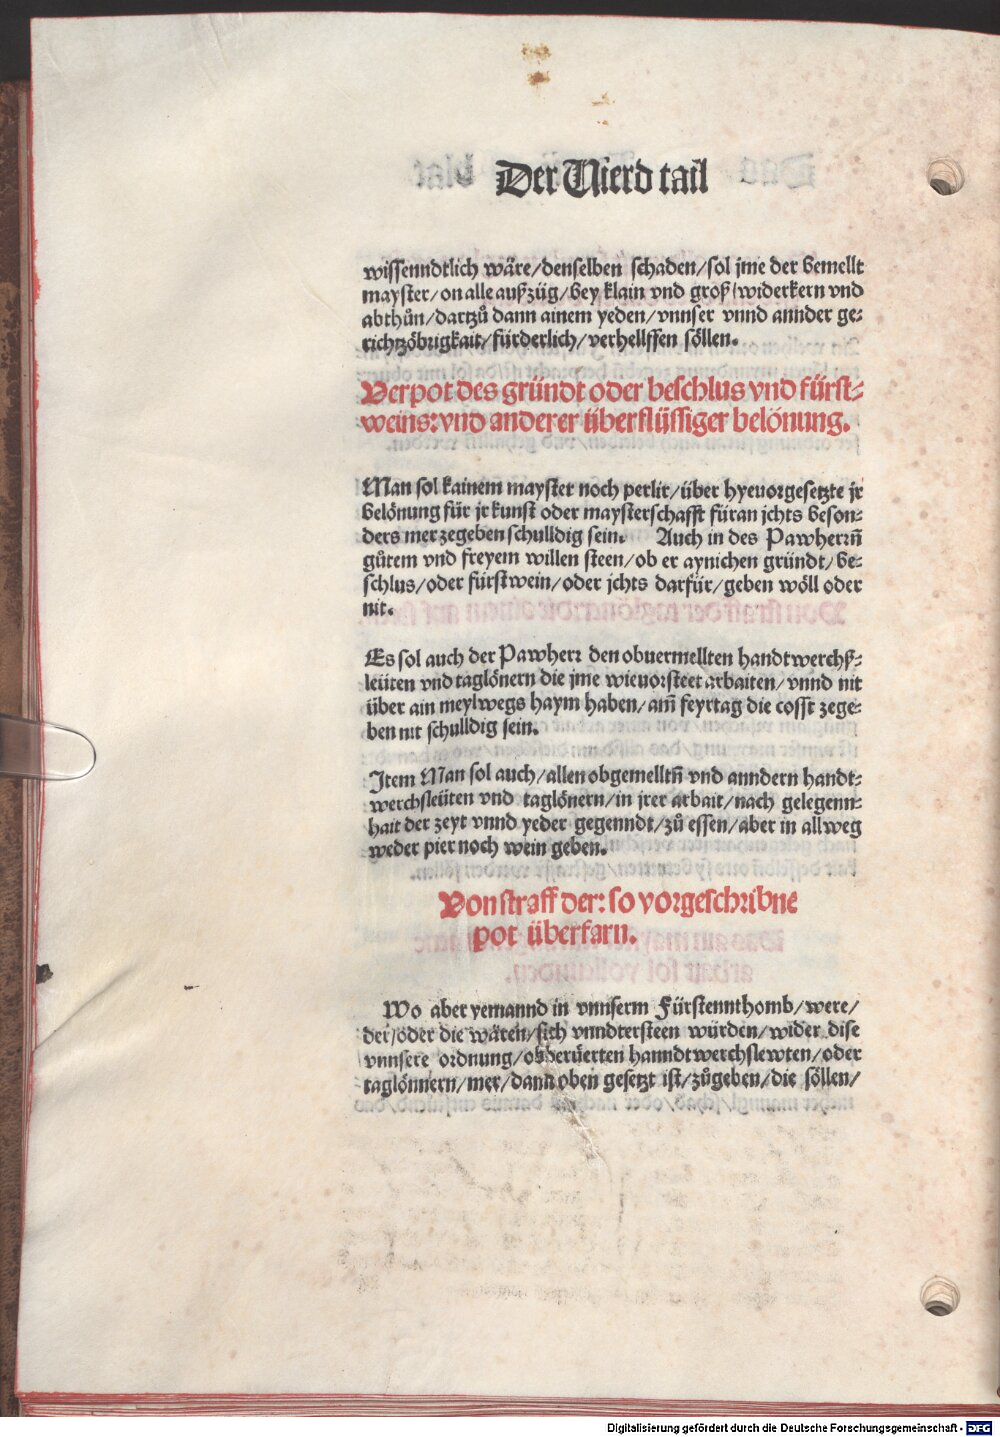 Der Vierd tail
wissenndtlich wäre/denselben schaden/sol jme der bemellt
mayster/on alle außzüg/bey klain vnd groß/widerkern vnd
abthůn/dartzů dann ainem yeden/vnnser vnnd annder ge⸗
richtzöbrigkait/fürderlich/verhellffen söllen.
Verpot des gründt oder beschlus vnd fürst⸗
weins: vnd anderer überflüssiger belönung.
Man sol kainem mayster noch perlir/über hyeuorgesetzte jr
belönung für jr kunst oder maysterschafft füran jchts beson⸗
ders mer zegeben schulldig sein. Auch in des Pawherrñ
gůtem vnd freyem willen steen/ob er aynichen gründt/be⸗
schlus/oder fürstwein/oder jchts darfür/geben wöll oder
nit.
Es sol auch der Pawherr den obuermellten handtwerchß⸗
leüten vnd taglönern die jme wieuorsteet arbaiten/vnnd nit
über ain meyl wegs haym haben/am̃ feyrtag die cosst zege⸗
ben nit schulldig sein.
Item Man sol auch/allen obgemelltñ vnd anndern handt⸗
werchsleüten vnd taglönern/in jrer arbait/nach gelegenn⸗
hait der zeyt vnnd yeder gegenndt/zů essen/aber in allweg
weder pier noch wein geben.
Von straff der: so vorgeschribne
pot überfarn.
Wo aber yemannd in vnnserm Fürstennthomb/were/
der/oder die wären/sich vnndtersteen würden/wider dise
vnnsere ordnung/obberüerten hanndtwerchslewten/oder
taglönnern/mer/dann oben gesetzt ist/zůgeben/die söllen/
Digitalisierung gefördert durch die Deutsche Forschungsgemeinschaft - DFG